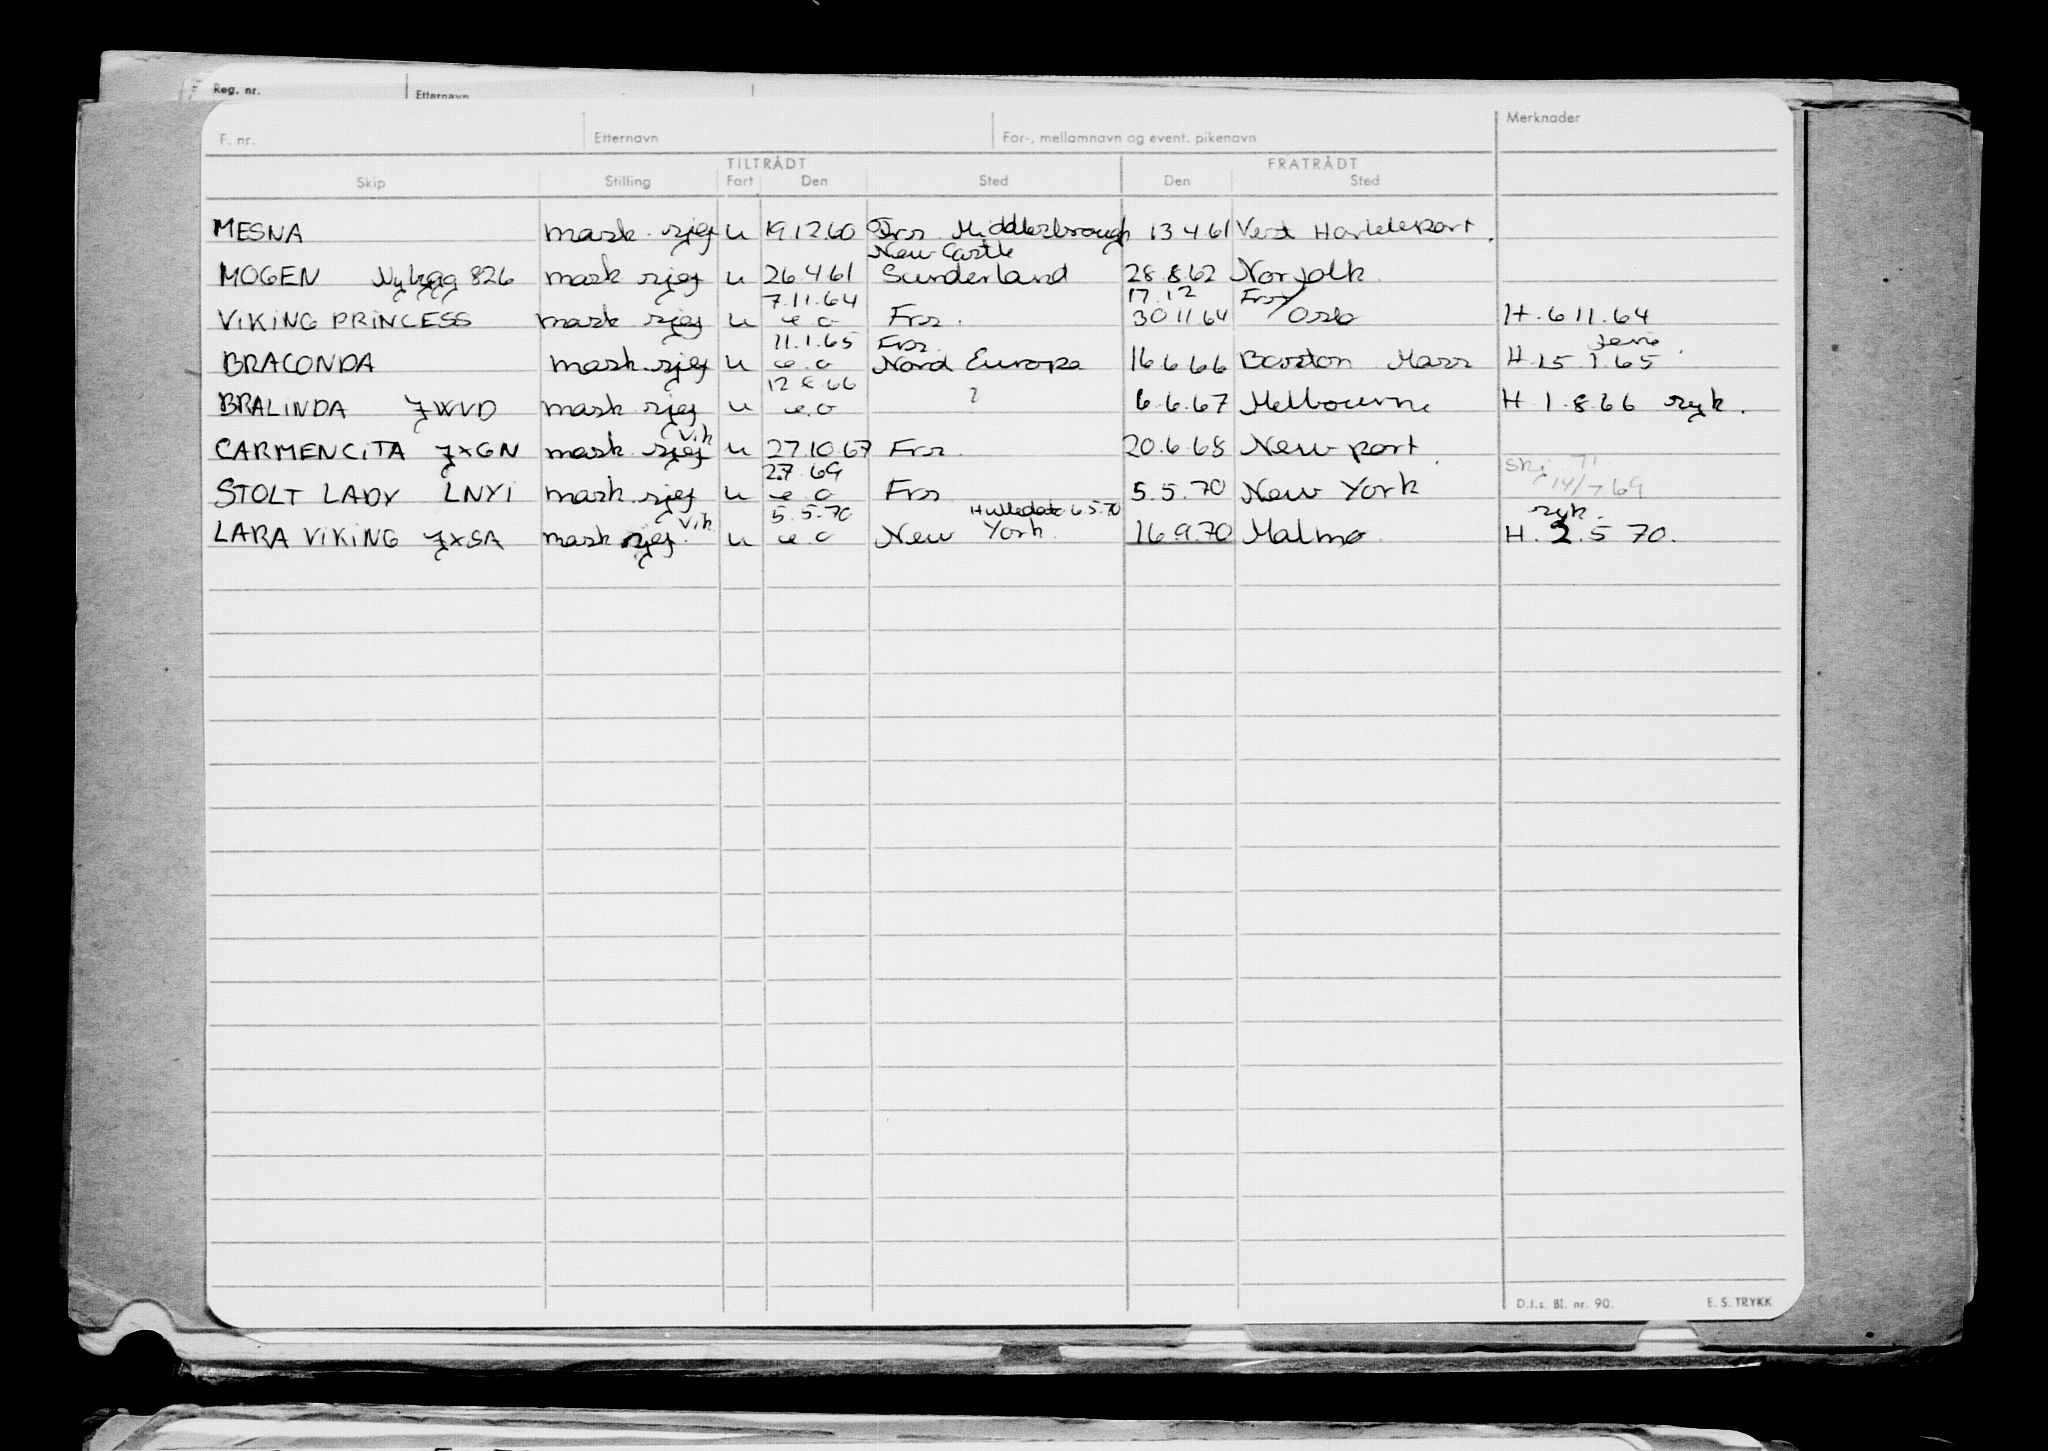 Reg. nr. Etternavn
F. nr. Etternavn For-, mellomnavn og event. pikenavn Merknader
TILTRÅDT FRATRÅDT
Skip Stilling Fart Den Sted Den Sted
MESNA mask. sjef u 19.12.60 Frs Middlesbrough 13 4 61 Vest Hartleport.
New Castle
MOGEN Nybygg 826 mask sjef u 26 4 61 Sunderland 28 8.62 Norfolk.
7.11.64 17.12 Frs
VIKING PRINCESS mask sjef u e.o Frs. 30 11 64 / Oslo H. 6 11. 64
11.1.65 Frs.
BRACONDA mask. sjef u e.o Nord Europa 16 6 66 Boston Mass H. 15 1. 65
12 8.66
BRALINDA JWVD mask sjef u e.o ? 6.6.67 Melbourne H 1.8.66 syk.
vik
CARMENCITA JXGN mask. sjef u 27.10.67 Frs. 20.6.68 New port.
2.7.69 Skj 71
STOLT LADY LNYI mask. sjef u e o Frs 5.5.70 New York 14/7 69
vik 5.5.70 Hulledato 6 5.70 syk.
LARA VIKING JXSA mask sjef. u e o New York. 16 9.70 Malmø. H. 2.5 70.
D.f.s. Bl. nr. 90. E. S. TRYKK